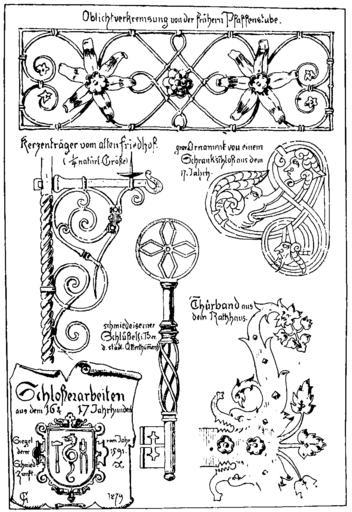 Oblichtverkremsung von der frühern Pfaffenstube.
Kerzenträger vom alten Friedhof.
(¼ natürl. Größe)
Ornament von einem
Schrankschloß aus dem
17. Jahrh
schmiedeiserner
Schlüssel i. Bes.
d. städt. Alterthümer
Thürband aus
dem Rathhaus.
Schloßerarbeiten
aus dem 16 u 17 Jahrhundert
Siegel
derer
Schmied
Zunft
vom Jahr
1591
1879